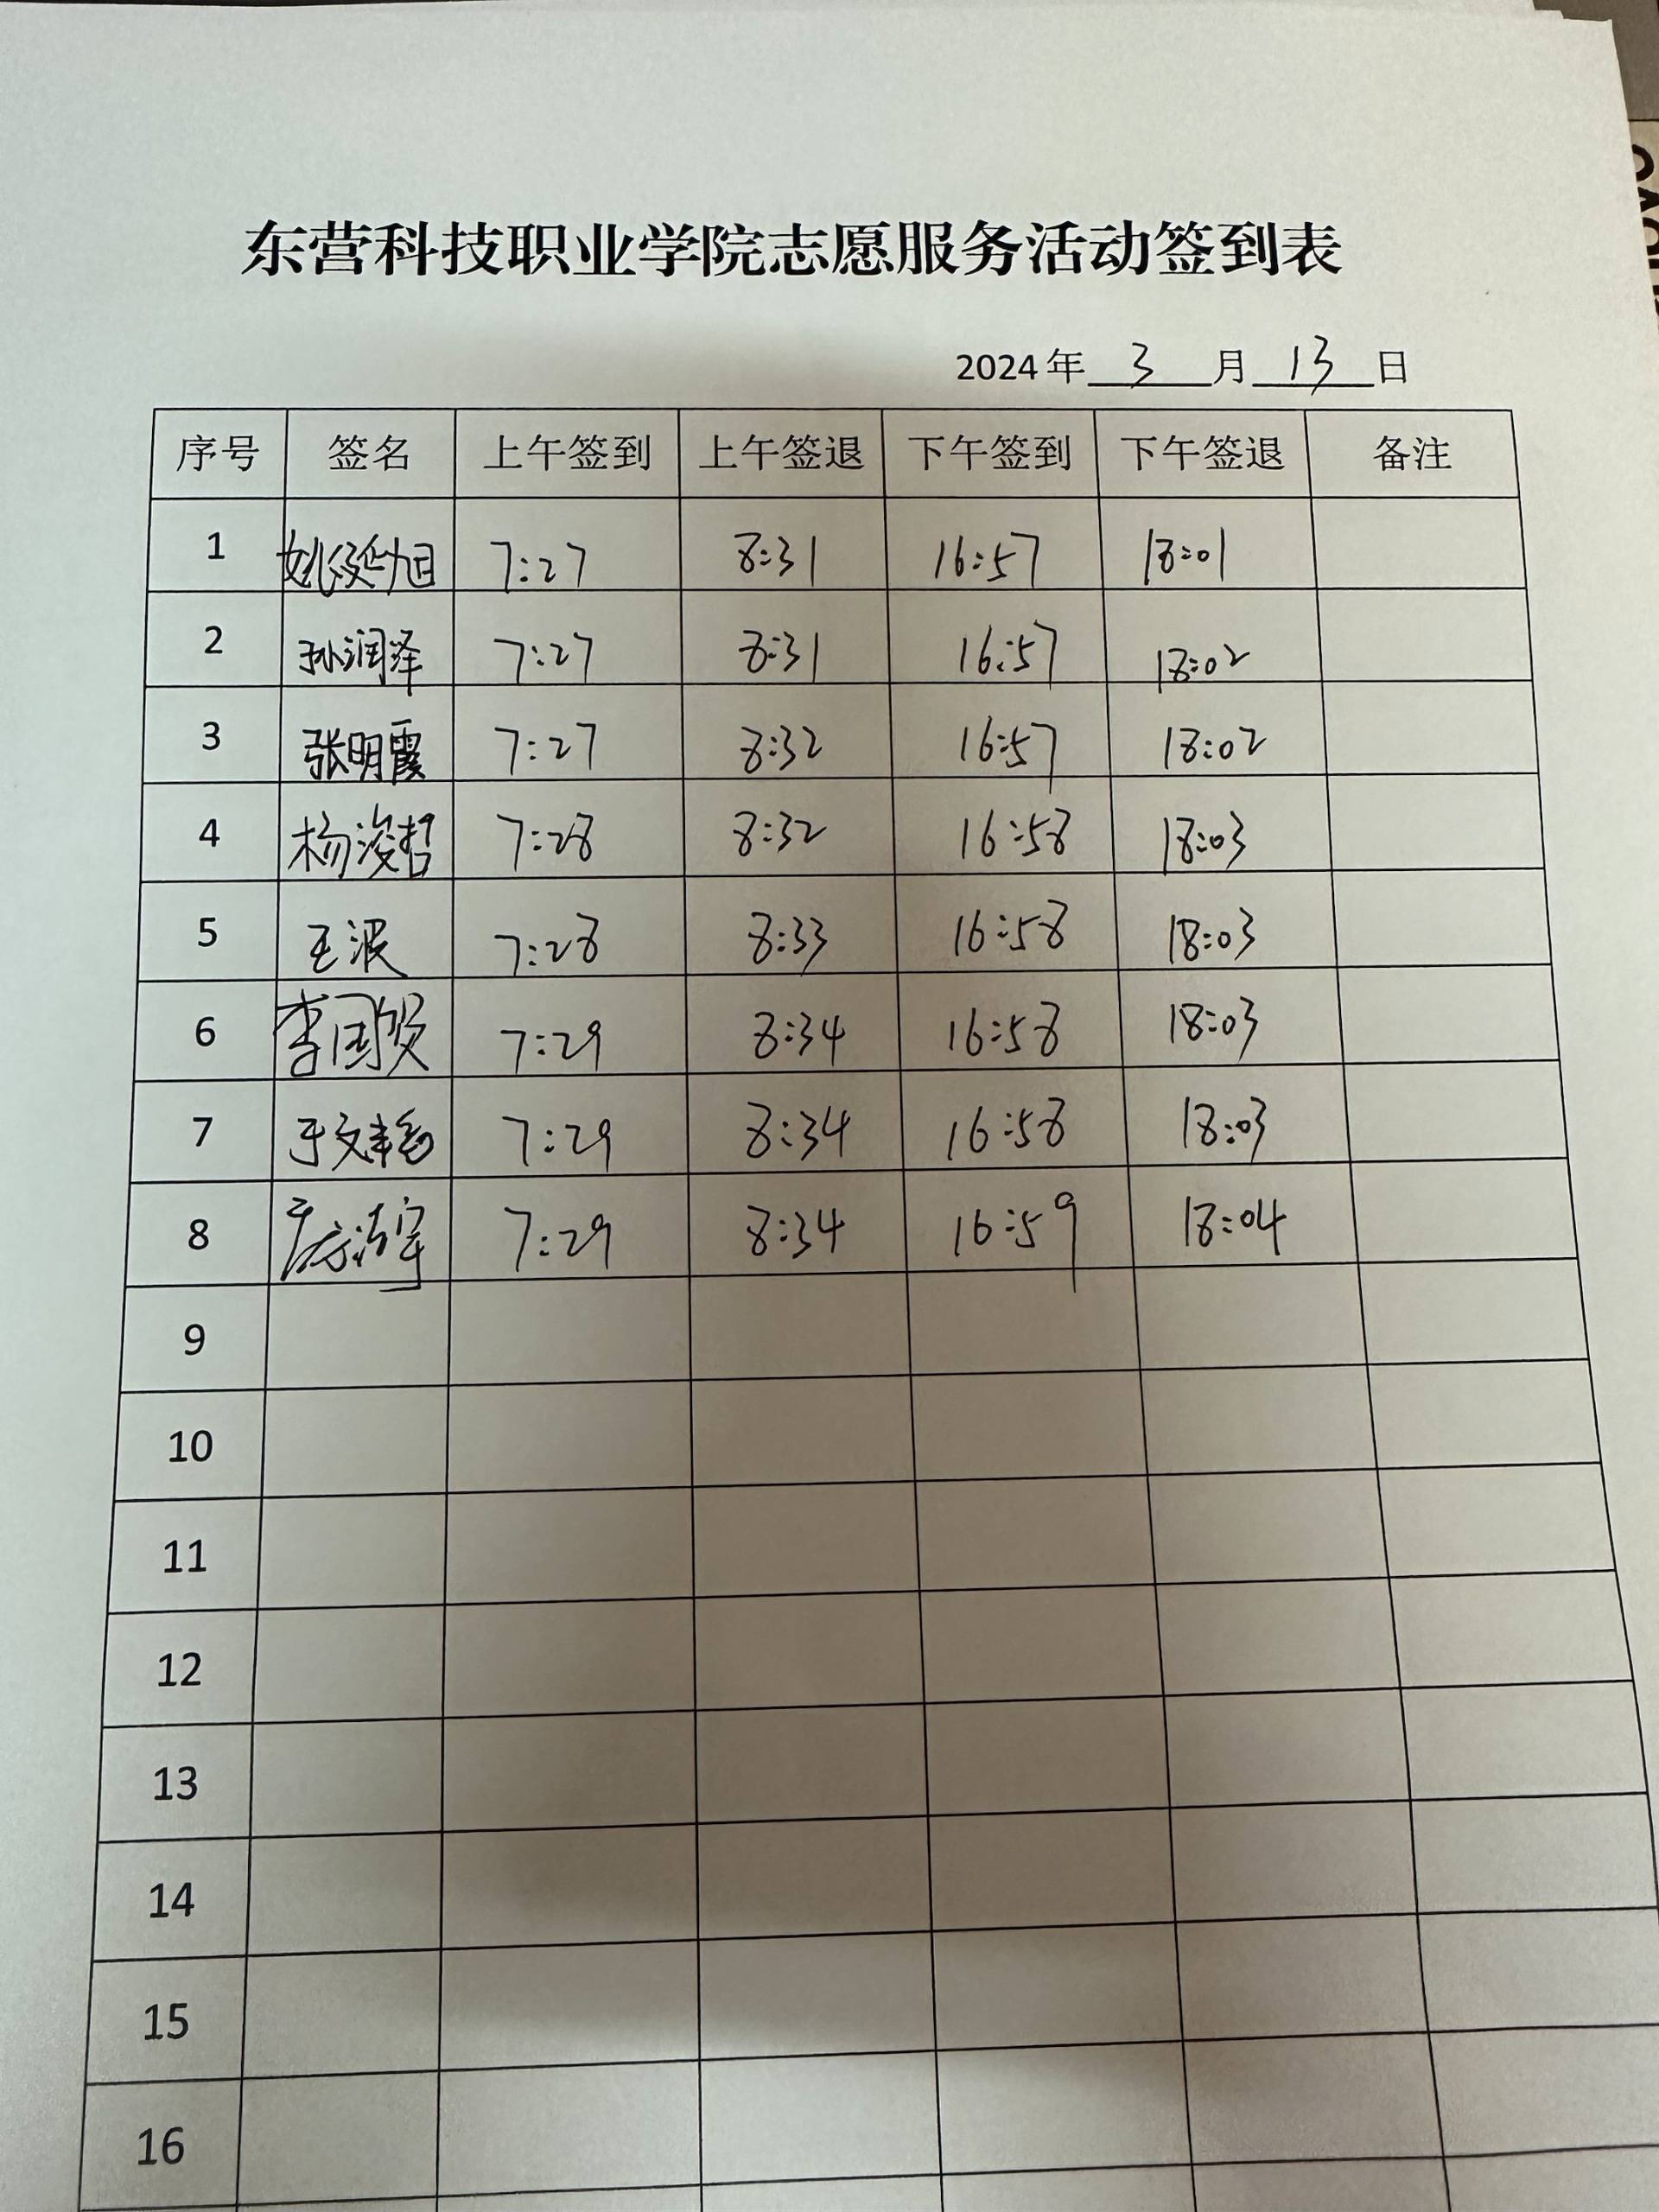 东营科技职业学院志愿服务活动签到表
2024 年 3 月 13 日
序号 签名 上午签到 上午签退 下午签到 下午签退 备注
1 姚延旭 7:27 8:31 16:57 18:01
2 孙润泽 7:27 8:31 16:57 18:02
3 张明霞 7:27 8:32 16:57 18:02
4 杨浚哲 7:28 8:32 16:58 18:03
5 王波 7:28 8:33 16:58 18:03
6 李国贤 7:29 8:34 16:58 18:03
7 于文 7:29 8:34 16:58 18:03
8 7:29 8:34 16:59 18:04
9
10
11
12
13
14
15
16